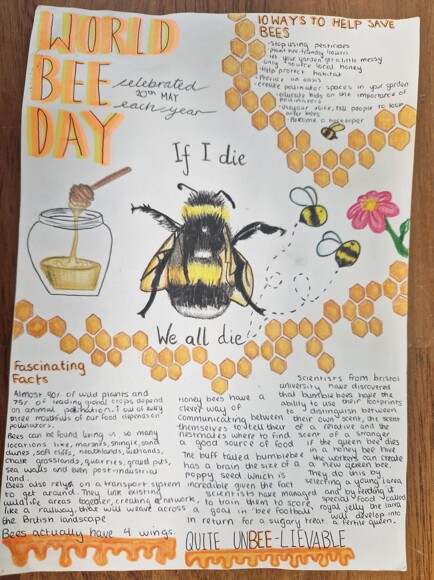 WORLD
BEE
DAY
celebrated
20th MAY
each year
10 WAYS TO HELP SAVE
BEES
- Stop using pesticides
- plant bee friendly flowers
- let your garden get a little messy
- buy source local honey
- Help protect habitat
- Provide an oasis
- create pollinator spaces in your garden
- educate kids on the importance of
pollinators
- use your voice, tell people to love
bees
- Become a beekeeper
If I die
We all die
Fascinating
Facts
Almost 90% of wild plants and
75% of leading global crops depend
on animal pollination. 1 out of every
three mouthfuls of our food depends on
pollinators.
Bees can be found living in so many
locations like, marshes, shingle, sand
dunes, soft cliffs, heathlands, wetlands,
chalk grasslands, quarries, gravel pits,
sea walls and even post-industrial
land.
Bees also rely on a transport system
to get around. They link existing
wildlife areas together, creating a network,
like a railway, that will weave across
the British landscape
Bees actually have 4 wings.
Honey bees have a
clever way of
communicating between
themselves to tell their
nestmates where to find
a good source of food
The buff tailed bumblebee
has a brain the size of a
poppy seed. Which is
incredible given the fact
scientists have managed
to train them to score a
goal in 'bee football'
in return for a sugary treat.
Scientists from bristol
university have discovered
that bumblebees have the
ability to use their footprints
to distinguish between
their own scent, the scent
of a relative and the
scent of a stranger
if the queen bee dies
in a honey bee hive
the workers can create
a new queen bee.
They do this by
selecting a young larva
and by feeding it
special food called
royal jelly the larva
will develop into
a fertile queen.
QUITE UNBEE-LIEVABLE